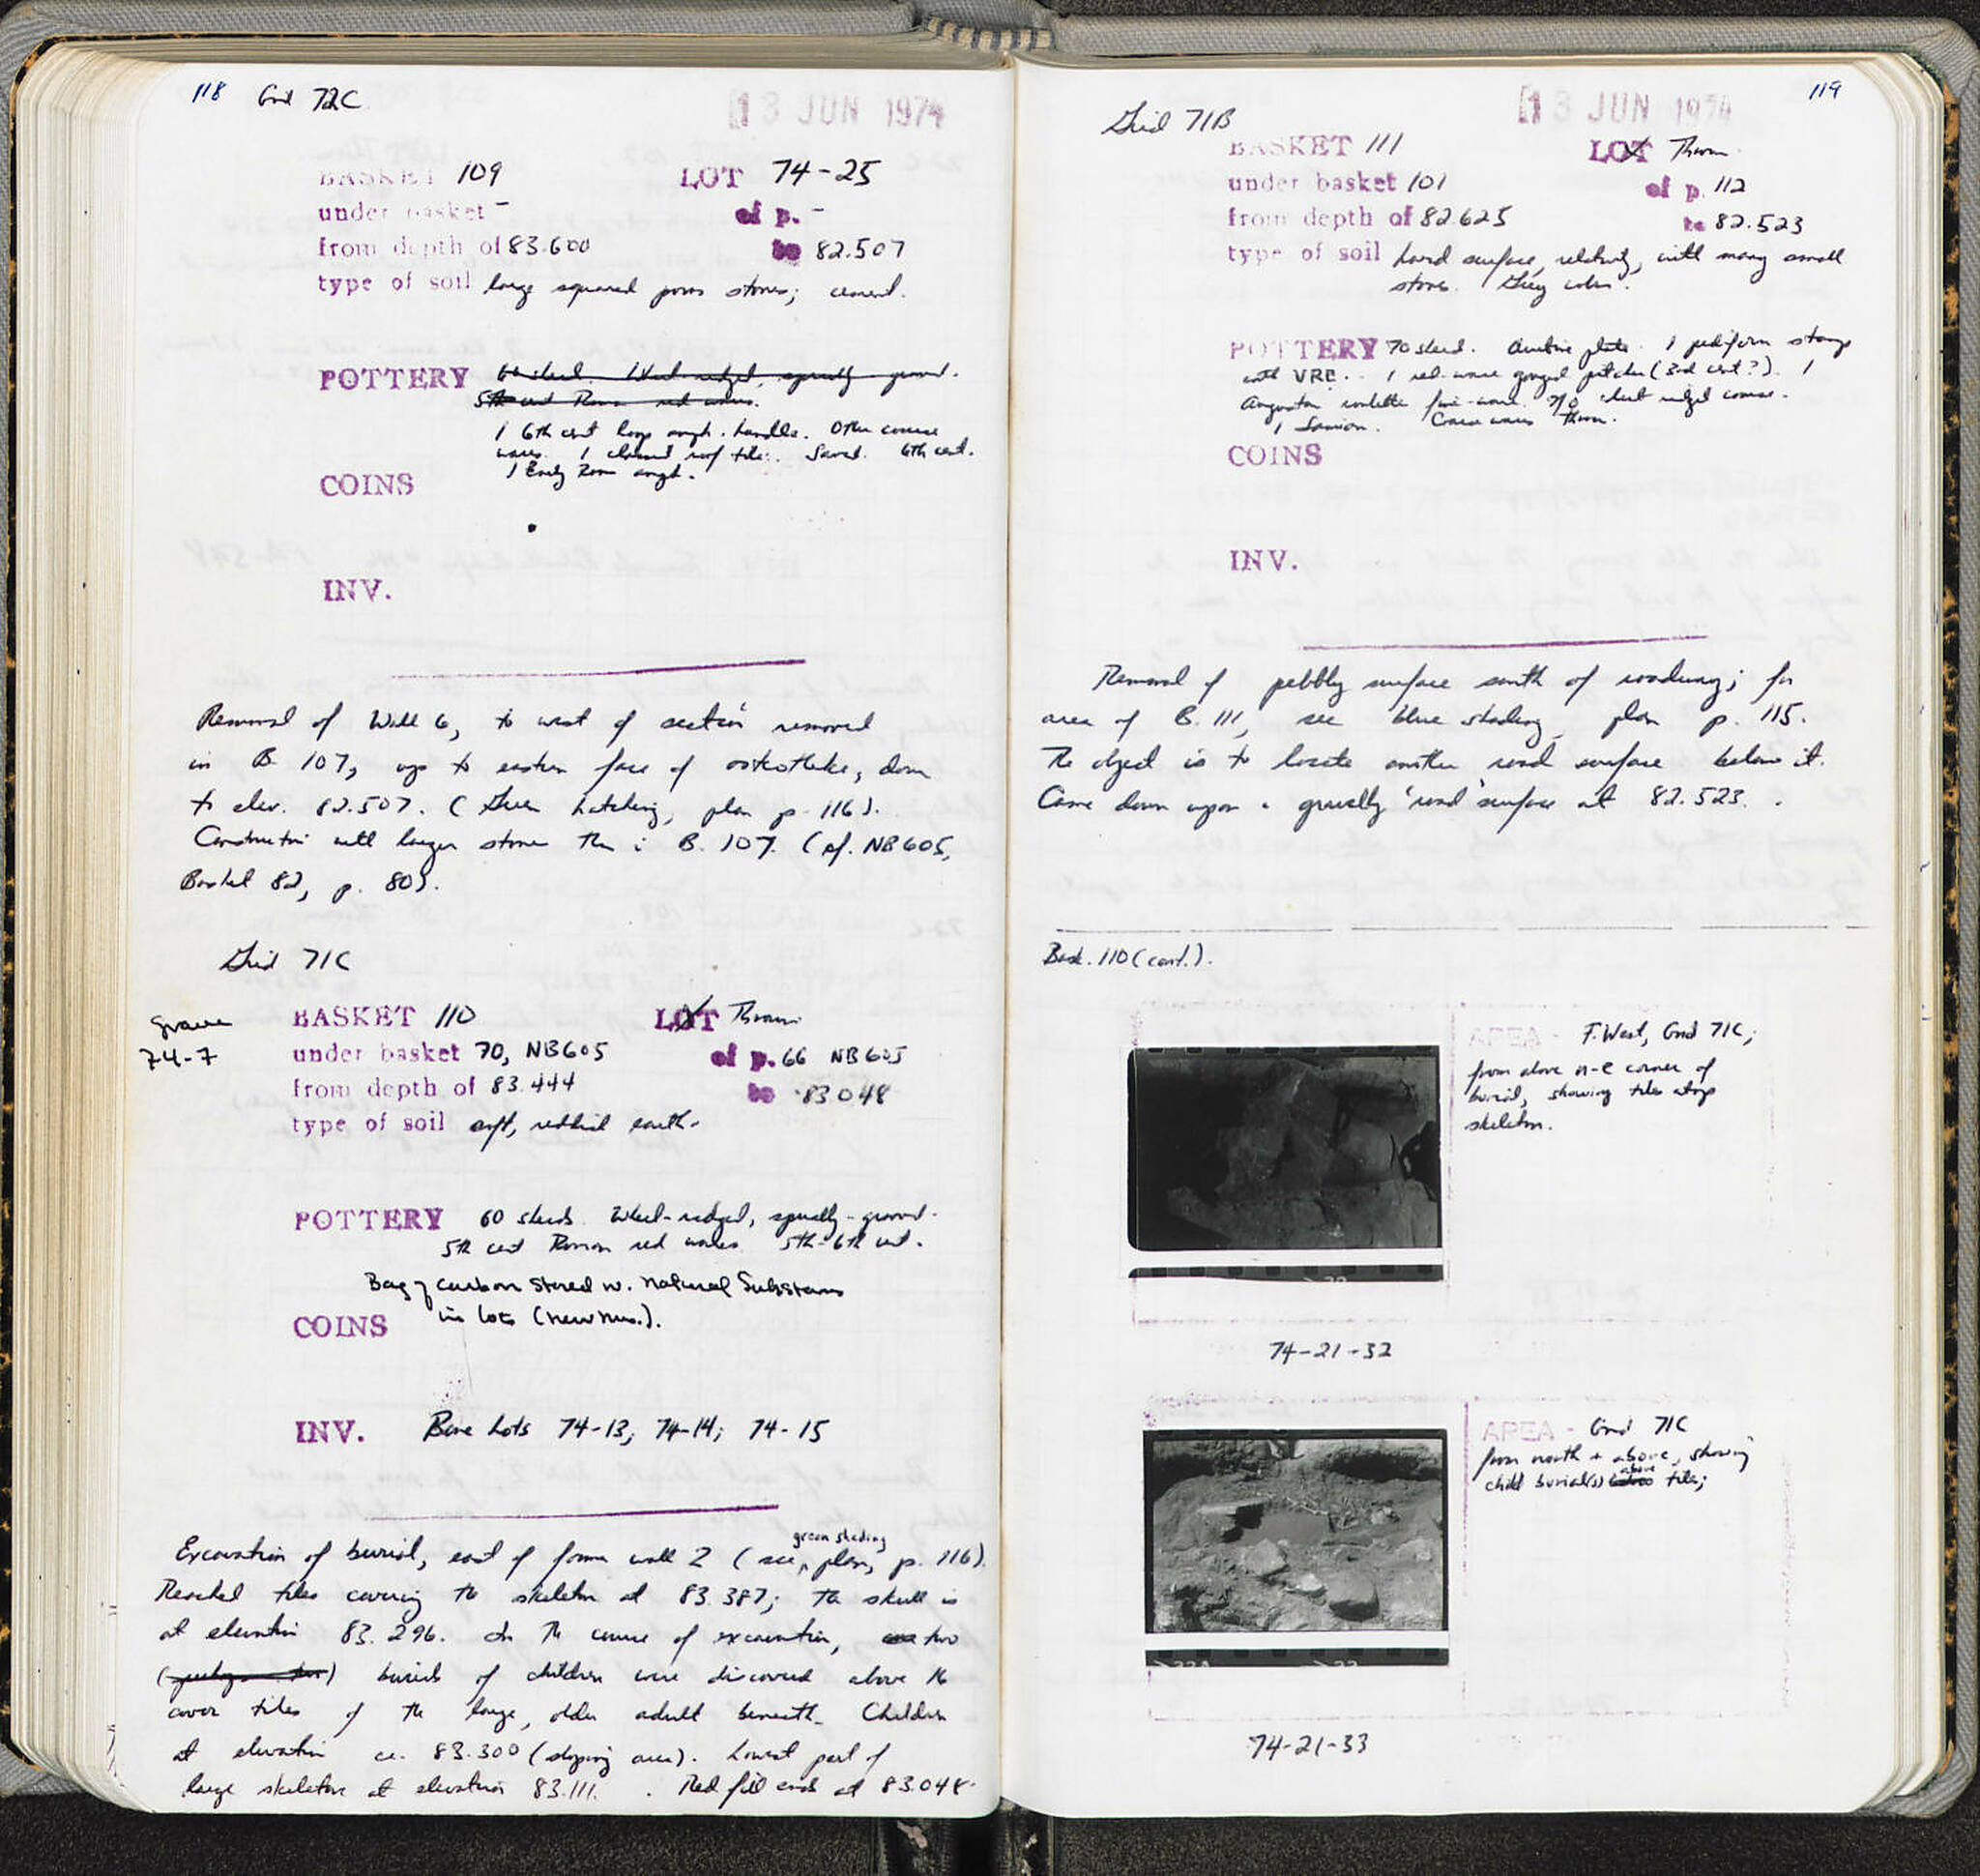 118 Grid 72C
13 JUN 1974
BASKET 109 LOT 74-25
under basket - of p. -
from depth of 83.600 to 82.507
type of soil large squared poros stones; cement.
POTTERY 60 sherd. Wheel-ridged, spirally grooved.
5th cent Roman red wares.
1 6th cent loop amph. handle. Other coarse
wares. 1 roof tile. Saved. 6th cent.
1 Early Rom amph.
COINS
INV.
Removal of Wall 6, to west of section removed
in B. 107, up to eastern face of osteotheke, down
to elev. 82.507. (Green hatching, plan p. 116).
Construction with larger stones than in B. 107. (cf. NB605,
Basket 82, p. 80).
Grid 71C
grave
74-7
BASKET 110 LOT Thrown
under basket 70, NB605 of p. 66 NB605
from depth of 83.444 to 83.048
type of soil soft, reddish earth.
POTTERY 60 sherds. Wheel-ridged, spirally-grooved.
5th cent Roman red wares. 5th-6th cent.
Bag of carbon stored w. Natural Substances
in lots (new mus.).
COINS
INV. Bone Lots 74-13; 74-14; 74-15
green shading
Excavation of burial, east of former wall 2 (see, plan, p. 116).
Reached tiles covering the skeleton at 83.387; the skull is
at elevation 83.296. In the course of excavation, two
burials of children were discovered above the
cover tiles of the large, older adult beneath. Children
at elevation ca. 83.300 (sloping area). Lowest part of
large skeleton at elevation 83.111. Red fill ends at 83.048.
119
13 JUN 1974
Grid 71B
BASKET 111 LOT Thrown
under basket 101 of p. 112
from depth of 82.625 to 82.523
type of soil hard surface, relatively, with many small
stones. Grey color.
POTTERY 70 sherd. Arretine plate. 1 pediform stamp
with VRE. 1 red-ware gouged pitcher (3rd cent?). 1
Augustan roulette fine-ware. wheel ridged coarse.
1 Samian. Coarse wares thrown.
COINS
INV.
Removal of pebbly surface south of roadway; for
area of B. 111, see blue shading, plan p. 115.
The object is to locate another road surface below it.
Came down upon a gravelly 'road' surface at 82.523.
Bask. 110 (cont.).
AREA - F. West, Grid 71C;
from above n-e corner of
burial, showing tiles atop
skeleton.
74-21-32
AREA - Grid 71C
from north + above, showing
above
child burial(s) tiles;
74-21-33